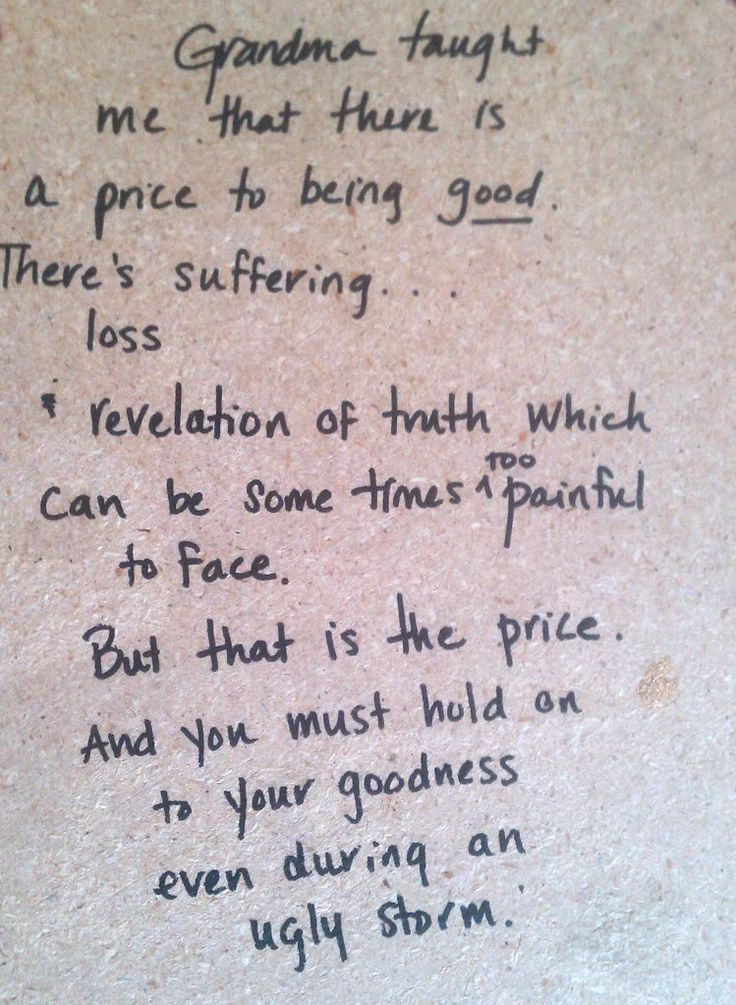 Grandma taught
me that there is
a price to being good.
There's suffering...
loss
& revelation of truth which
can be some times ^ TOO painful
to face.
But that is the price.
And you must hold on
to your goodness
even during an
ugly storm.